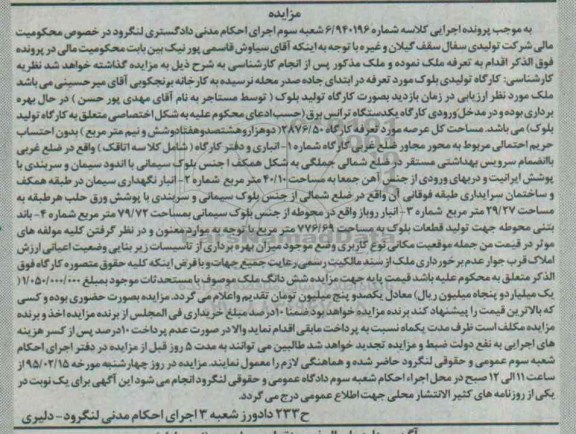 مزایده
به موجب پرونده اجرایی کلاسه شماره ۶/۹۴۰۱۹۶ شعبه سوم اجرای احکام مدنی دادگستری لنگرود در خصوص محکومیت
مالی شرکت تولیدی سفال سقف گیلان و غیره با توجه به اینکه آقای سیاوش قاسمی پور نیک بین بابت محکومیت مالی در پرونده
فوق الذکر اقدام به تعرفه ملک نموده و ملک مذکور پس از انجام کارشناسی به شرح ذیل به مزایده گذاشته خواهد شد نظریه
کارشناسی: کارگاه تولیدی بلوک مورد تعرفه در ابتدای جاده صدر محله نرسیده به کارخانه برنجکوبی آقای میرحسینی می باشد
ملک مورد نظر ارزیابی در زمان بازدید بصورت کارگاه تولید بلوک ( توسط مستاجر به نام آقای مهدی پور حسن ) در حال بهره
برداری بوده و در مدخل ورودی کارگاه یکدستگاه ترانس برق (حسب ادعای محکوم علیه به شکل اختصاصی متعلق به کارگاه تولید
بلوک) می باشد. مساحت کل عرصه مورد تعرفه کارگاه ۲۸۷۶/۵۰ (دوهزار و هشتصد و هفتاد و شش و نیم متر مربع ) بدون احتساب
حریم احتمالی مربوط به محور مجاور ضلع غربی کارگاه شماره ۱- انباری و دفتر کارگاه ( شامل کلا سه اتاقک ) واقع در ضلع غربی
باانضمام سرویس بهداشتی مستقر در ضلع شمالی جملگی به شکل همکف از جنس بلوک سیمانی با اندود سیمان و سربندی با
پوشش ایرانیت و دربهای ورودی از جنس آهن جمعا به مساحت ۴۰/۱۰ متر مربع شماره ۲- انبار نگهداری سیمان در طبقه همکف
و ساختمان سرایداری طبقه فوقانی آن واقع در ضلع شمالی از جنس بلوک سیمانی و سربندی با پوشش ورق حلب هر طبقه به
مساحت ۲۹/۲۷ متر مربع شماره ۳- انبار روباز واقع در محوطه از جنس بلوک سیمانی بمساحت ۷۹/۷۲ متر مربع شماره ۴- باند
بتنی محوطه جهت تولید قطعات بلوک به مساحت ۷۷۶/۶۹ متر مربع با توجه به موارد معنون و در نظر گرفتن کلیه مولفه های
موثر در قیمت من جمله موقعیت مکانی نوع کاربری وضع موجود میزان بهره برداری از تاسیسات زیر بنایی وضعیت اعیانی ارزش
املاک قرب جوار عدم برخورداری ملک از سند مالکیت رسمی رعایت جمیع جهات و با فرض اینکه کلیه حقوق متصوره کارگاه فوق
الذکر متعلق به محکوم علیه باشد قیمت پایه جهت مزایده شش دانگ ملک موصوف با مستحدثات موجود بمبلغ ۱/۰۵۰/۰۰۰/۰۰۰(
یک میلیارد و پنجاه میلیون ریال) معادل یکصد و پنج میلیون تومان تقدیم و اعلام می گردد. مزایده بصورت حضوری بوده و کسی
که بالاترین قیمت را پیشنهاد کند برنده مزایده خواهد بود ضمنا ۱۰ درصد مبلغ خریداری فی المجلس از برنده مزایده اخذ و برنده
مزایده مکلف است ظرف مدت یکماه نسبت به پرداخت مابقی اقدام نماید والا در صورت عدم پرداخت ۱۰ درصد پس از کسر هزینه
های اجرایی به نفع دولت ضبط و مزایده تجدید خواهد شد طالبین می توانند به مدت ۵ روز قبل از مزایده در دفتر اجرای احکام
شعبه سوم عمومی و حقوقی لنگرود حاضر شده و هماهنگی لازم را معمول نمایند. مزایده در روز چهارشنبه مورخه ۹۵/۰۲/۱۵ از
ساعت ۱۱ الی ۱۲ صبح در محل اجراء احکام شعبه سوم دادگاه عمومی و حقوقی لنگرود انجام می شود این آگهی برای یک نوبت در
یکی از روزنامه های کثیر الانتشار محلی جهت اطلاع عمومی درج می گردد.
ح ۲۳۳ دادورز شعبه ۳ اجرای احکام مدنی لنگرود- دلیری